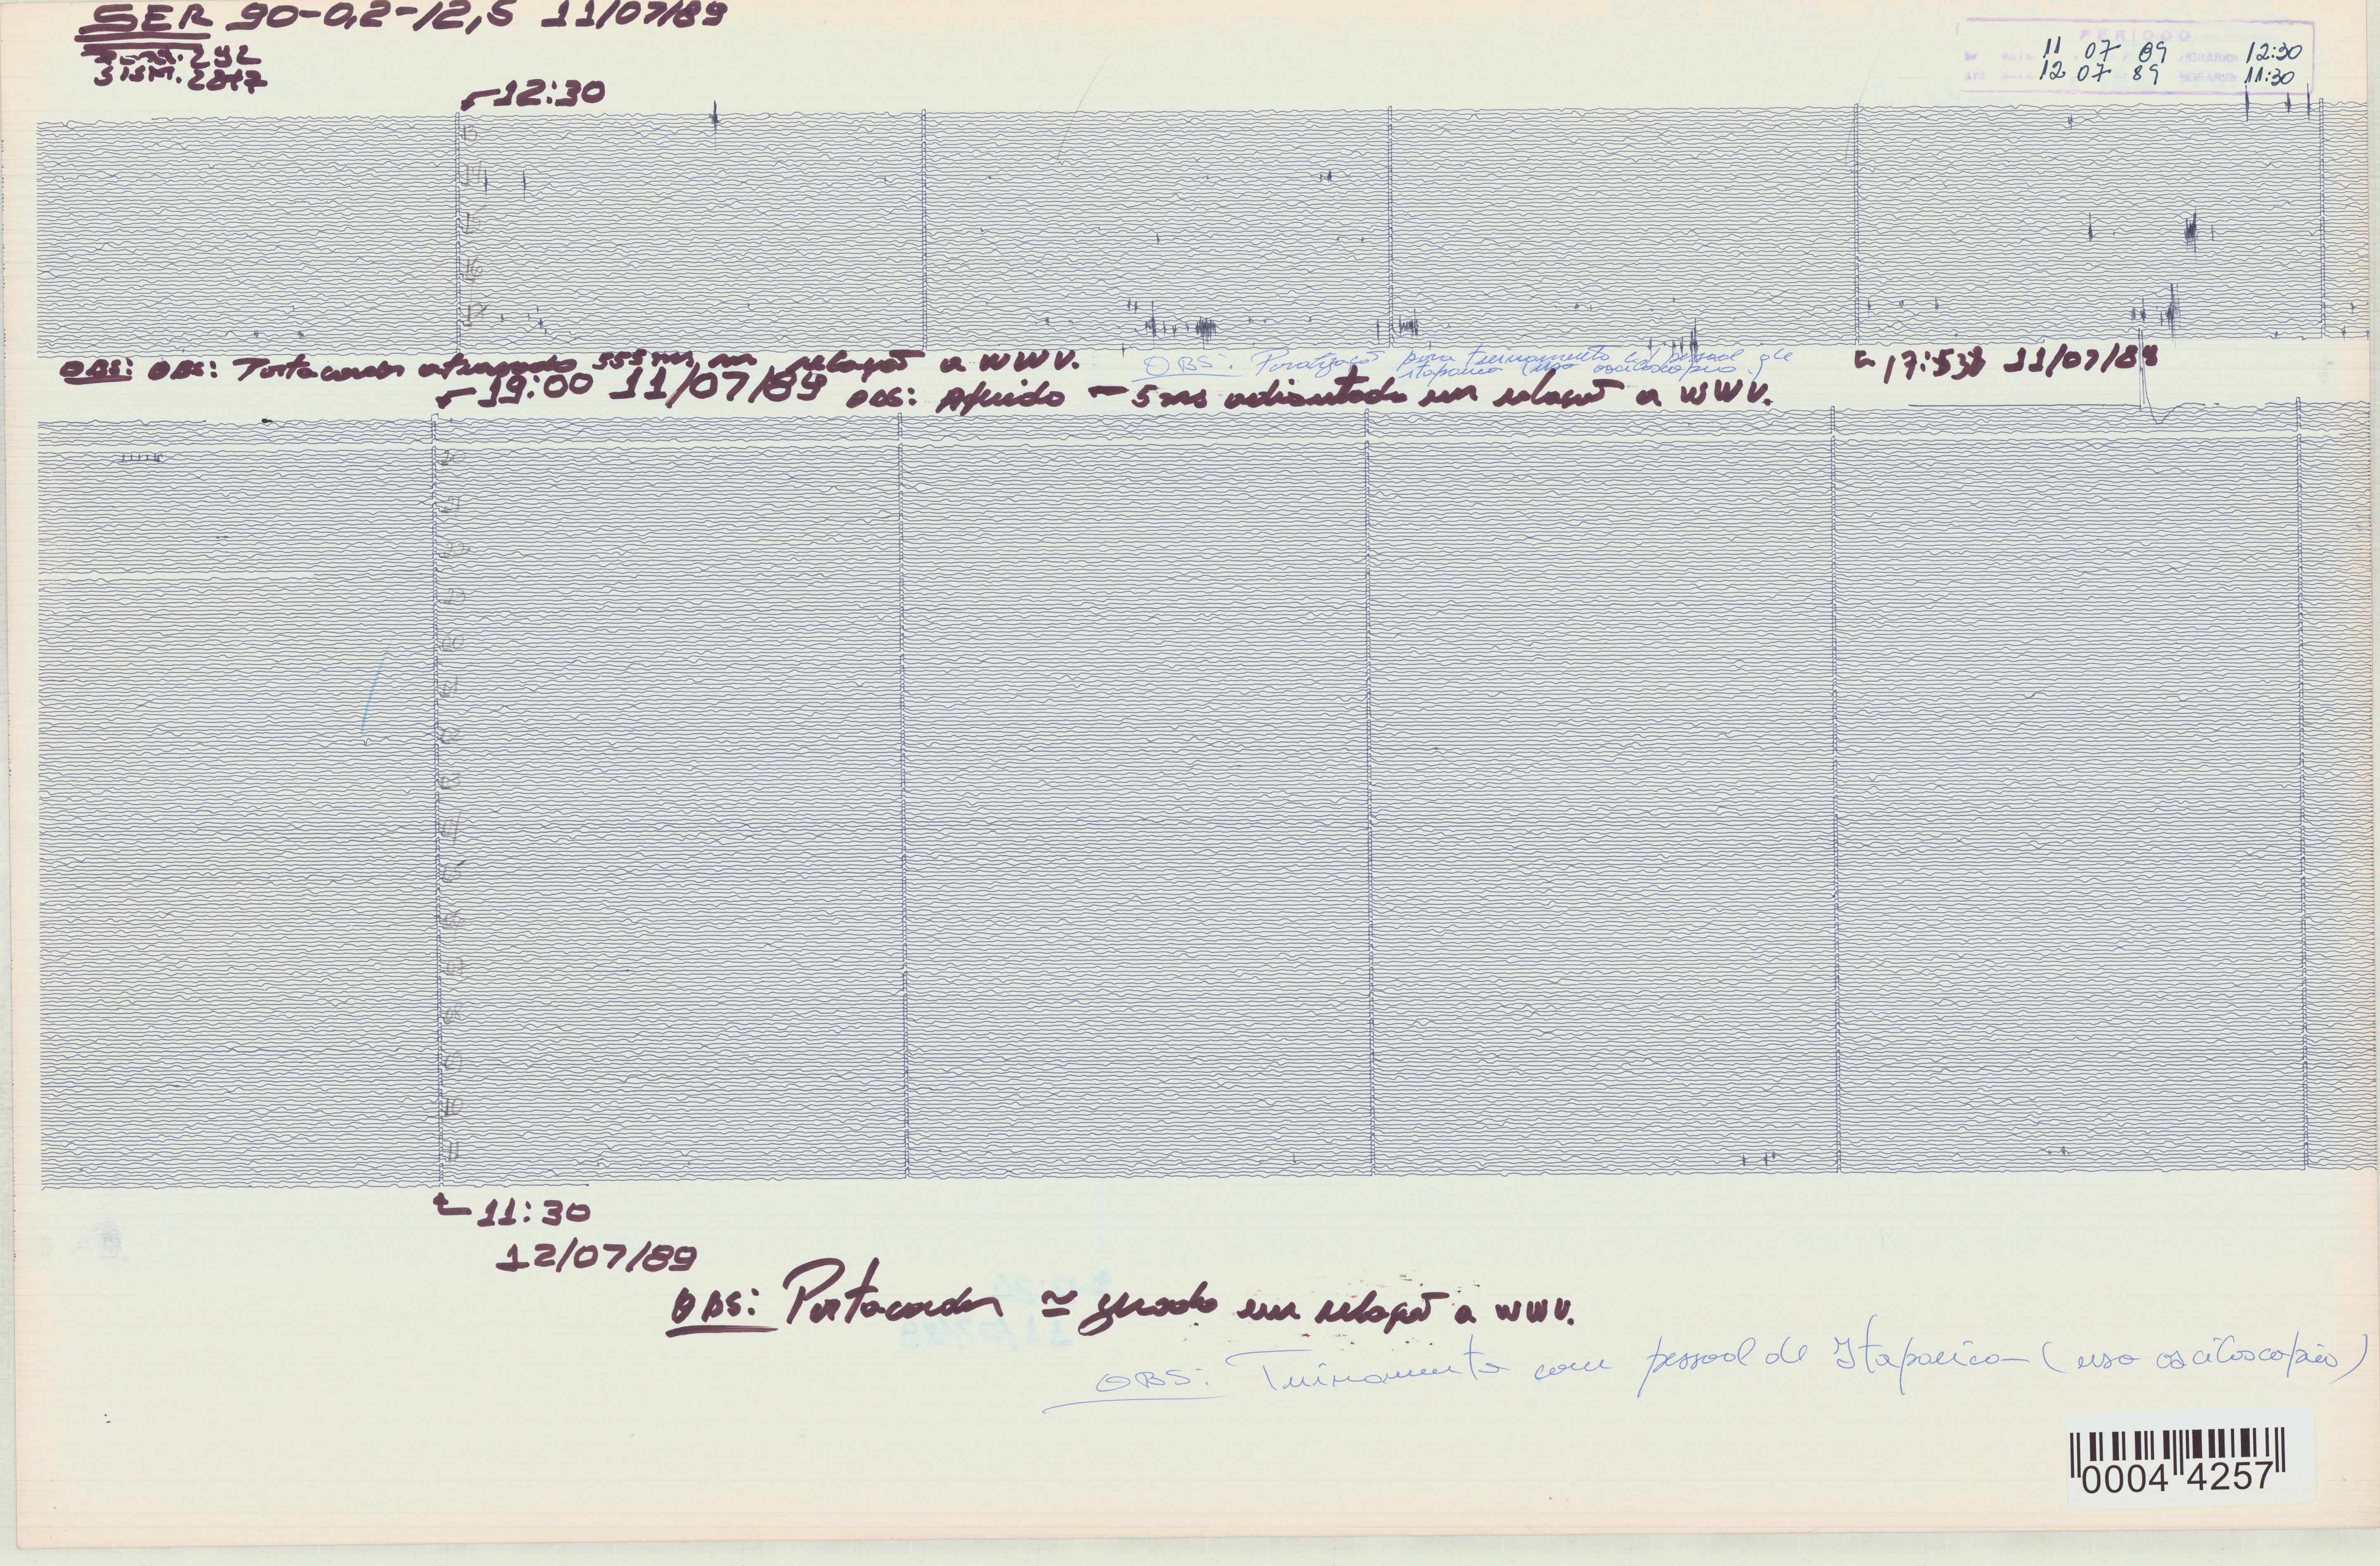 SER 90-0,2-12,5 11/07/89
SISM. 2817
PERÍODO
11 07 89 HORÁRIO 12:30
12 07 89 HORÁRIO 11:30
12:30
13
14
15
16
17
OBS: OBS: Portacorder atrasado 555 ms em relação a WWV.
OBS: Paralização para treinamento c/ pessoal de
Itaparica (uso osciloscópio)
17:53 11/07/89
19:00 11/07/89 OBS: Aferido - 5 ms adiantado em relação a WWV.
20
21
22
23
00
01
02
03
04
05
06
07
08
09
10
11
11:30
12/07/89
OBS: Portacorder ≃ zerado em relação a WWV.
OBS: Treinamento com pessoal de Itaparica (uso osciloscópio)
0004 4257